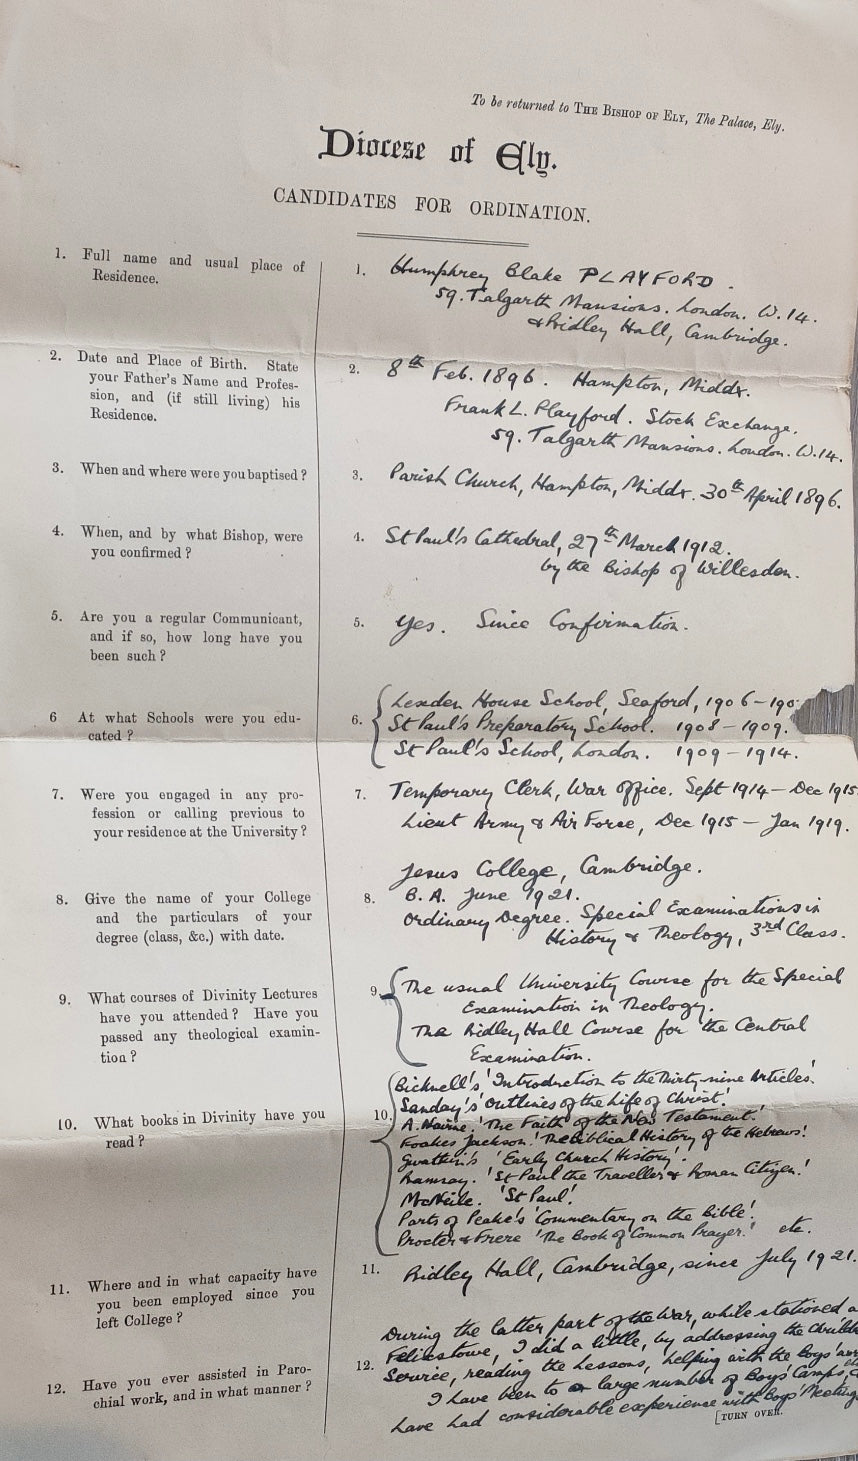 To be returned to THE BISHOP OF ELY, The Palace, Ely.
Diocese of Ely.
CANDIDATES FOR ORDINATION.
1. Full name and usual place of
Residence.
1. Humphrey Blake PLAYFORD.
59. Talgarth Mansions. London. W.14.
& Ridley Hall, Cambridge.
2. Date and Place of Birth. State
your Father's Name and Profes-
sion, and (if still living) his
Residence.
2. 8th Feb. 1896. Hampton, Middx.
Frank L. Playford. Stock Exchange.
59. Talgarth Mansions. London. W.14.
3. When and where were you baptised?
3. Parish Church, Hampton, Middx. 30th April 1896.
4. When, and by what Bishop, were
you confirmed?
4. St Paul's Cathedral, 27th March 1912.
by the Bishop of Willesden.
5. Are you a regular Communicant,
and if so, how long have you
been such?
5. Yes. Since Confirmation.
6 At what Schools were you edu-
cated?
6. House School, Seaford, 1906-190
St Paul's Preparatory School. 1908-1909.
St Paul's School, London. 1909-1914.
7. Were you engaged in any pro-
fession or calling previous to
your residence at the University?
7. Temporary Clerk, War Office. Sept 1914 - Dec 1915
Lieut Army & Air Force, Dec 1915 - Jan 1919.
8. Give the name of your College
and the particulars of your
degree (class, &c.) with date.
Jesus College, Cambridge.
8. B.A. June 1921.
Ordinary Degree. Special Examinations in
History & Theology, 3rd Class.
9. What courses of Divinity Lectures
have you attended? Have you
passed any theological examin-
tion?
9. The usual University Course for the Special
Examination in Theology.
The Ridley Hall Course for the Central
Examination.
10. What books in Divinity have you
read?
Bicknell's 'Introduction to the Thirty-nine Articles.'
Sanday's 'Outlines of the Life of Christ.'
10. A. Nairne. 'The Faith of the New Testament.'
Foakes Jackson. 'The Biblical History of the Hebrews.'
Gwatkin's 'Early Church History.'
Ramsay. 'St Paul the Traveller & Roman Citizen.'
McNeile. 'St Paul.'
Parts of Peake's 'Commentary on the Bible.'
Procter & Frere 'The Book of Common Prayer.' etc.
11. Where and in what capacity have
you been employed since you
left College?
11. Ridley Hall, Cambridge, since July 1921.
12. Have you ever assisted in Paro-
chial work, and in what manner?
During the latter part of the War, while stationed a
Felixstowe, I did a little, by addressing the
12. Service, reading the Lessons, helping with the Boys'
I have been to a large number of Boys' Camps,
have had considerable experience with Boys' Meeting
[TURN OVER.